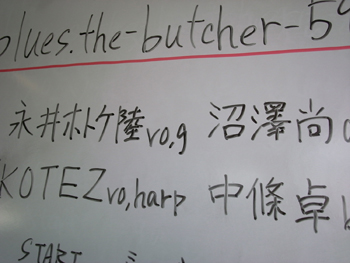 blues.the-butcher-59
永井ホトケ隆vo,g 沼澤尚d
KOTEZvo,harp 中條卓b
START